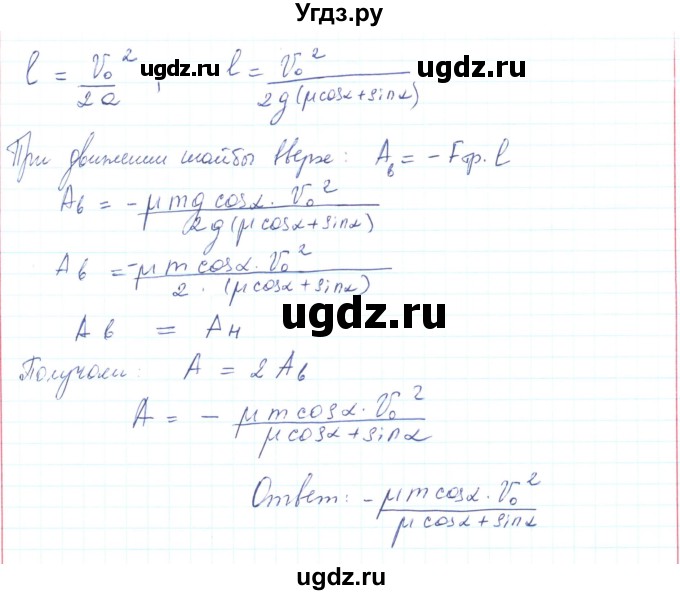 Угдз.ру
l = V₀²/2a ; l = V₀²/2g(μcosα+sinα)
ugdz.ru ugdz.ru
При движении шайбы вверх: Aв = -Fтр. l
Aв = -μmg cosα · V₀²/2g(μcosα+sinα)
ugdz.ru
Aв = -μm cosα · V₀²/2 · (μcosα+sinα)
Aв = Aн
ugdz.ru
Получали: A = 2Aв
A = - μm cosα · V₀²/μcosα+sinα
Ответ: -μm cosα · V₀²/μcosα+sinα
ugdz.ru
ugdz.ru